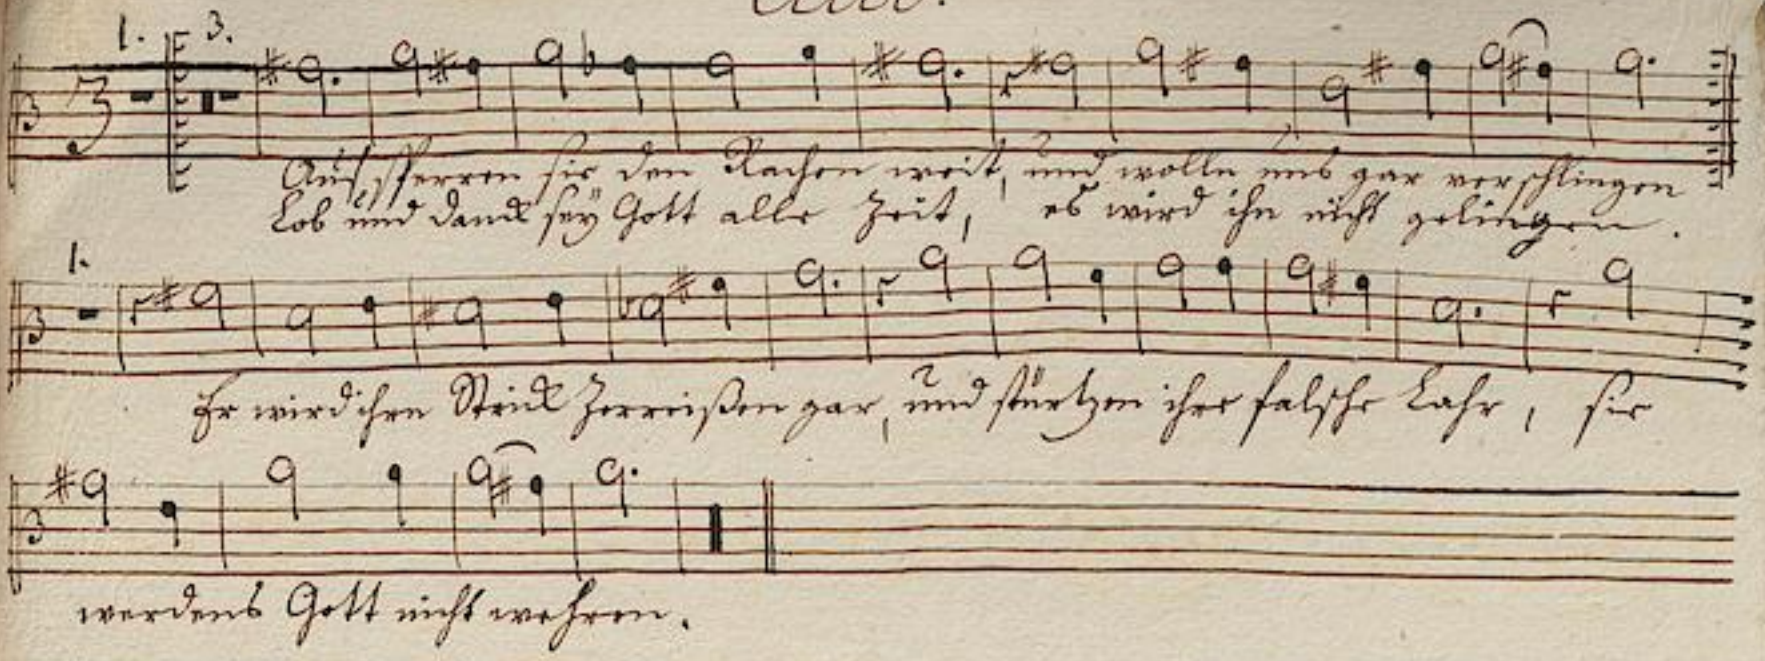 1. 3.
Auf sperren sie den Rachen weit, und wolln uns gar verschlingen
Lob und danck seÿ Gott alle Zeit, es wird ihn nicht gelingen.
1.
Er wird ihrn Strick Zerreißen gar, und stürtzen ihre falsche Lahr, sie
werdens Gott nicht wehren.